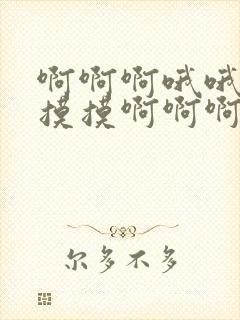 啊啊啊哦哦
摸摸啊啊啊
尔多不多